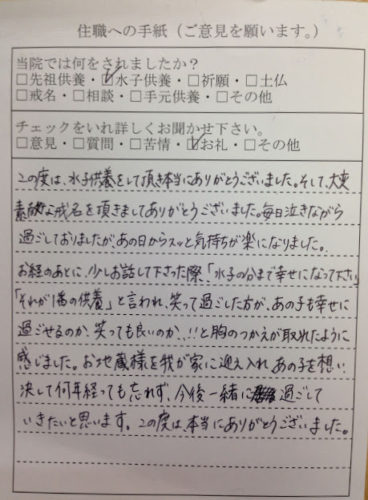 住職への手紙（ご意見を願います。）
当院では何をされましたか？
□先祖供養・☑水子供養・□祈願・□土仏
□戒名・□相談・□手元供養・□その他
チェックをいれ詳しくお聞かせ下さい。
□意見・□質問・□苦情・☑お礼・□その他
この度は、水子供養をして頂き本当にありがとうございました。そして、大変
素敵な戒名を頂きましてありがとうございました。毎日泣きながら
過ごしておりましたが、あの日からスッと気持ちが楽になりました。
お経のあとに、少しお話して下さった際、「水子の分まで幸せになって下さい」
「それが1番の供養」と言われ、笑って過ごした方が、あの子も幸せに
過ごせるのか、笑っても良いのか、!!と胸のつかえが取れたように
感じました。お地蔵様を我が家に迎え入れ、あの子を想い、
決して何年経っても忘れず、今後一緒に過ごして
いきたいと思います。この度は、本当にありがとうございました。